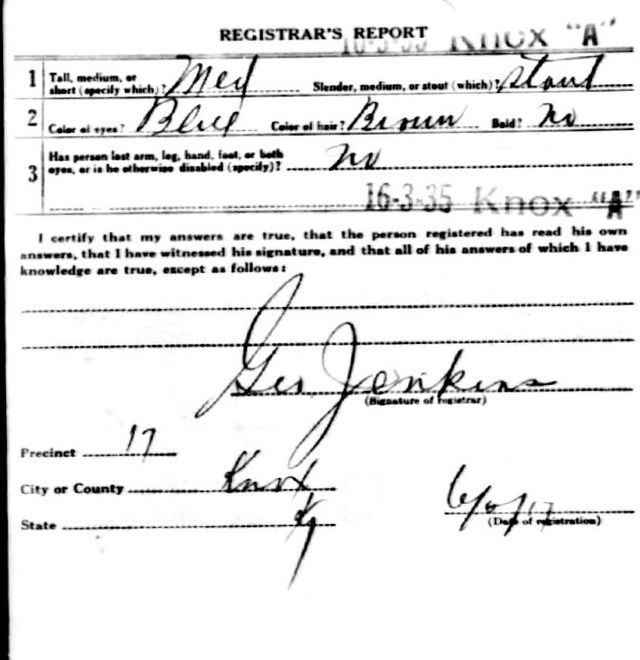 REGISTRAR'S REPORT
16-3-35 Knox "A"
1 Tall, medium, or short (specify which)? Med Slender, medium, or stout (which)? Stout
2 Color of eyes? Blue Color of hair? Brown Bald? No
3 Has person lost arm, leg, hand, foot, or both
eyes, or is he otherwise disabled (specify)? No
16-3-35 Knox "A"
I certify that my answers are true, that the person registered has read his own
answers, that I have witnessed his signature, and that all of his answers of which I have
knowledge are true, except as follows:
Geo Jenkins
(Signature of registrar)
Precinct 17
City or County Knox
State Ky
(Date of registration)